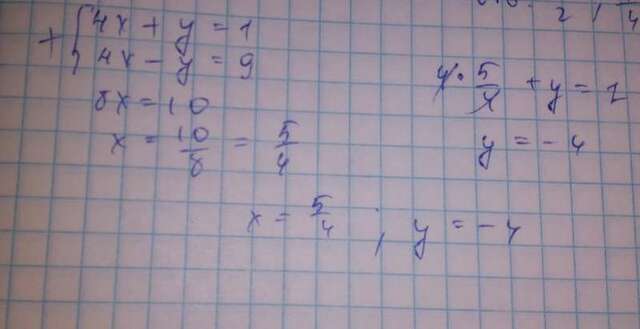 + { 4x + y = 1
4x - y = 9
8x = 10
x = 10/8 = 5/4
4 · 5/4 + y = 1
y = -4
x = 5/4 ; y = -4